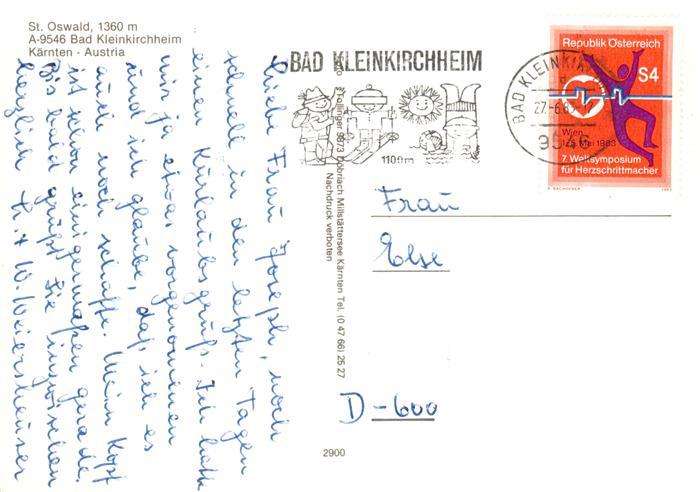 St. Oswald, 1360 m
A-9546 Bad Kleinkirchheim
Kärnten - Austria
Liebe Frau Joseph, noch
schnell in den letzten Tagen
einen Kurlaubsgruß. Ich hatte
mir ja etwas vorgenommen
und ich glaube, daß ich es
auch noch schaffe. Mein Kopf
ist schon einigermaßen gerade.
Bis bald grüßt Sie inzwischen
herzlich Fr. + W. Weiershäuser
BAD KLEINKIRCHHEIM
1100m
BAD KLEINKI
27-6.8
9546
Republik Österreich
S4
Wien
Mai 1983
7. Weltsymposium
für Herzschrittmacher
1983
9873 Döbriach Millstättersee Kärnten Tel. (0 47 66) 25 27
Nachdruck verboten
Frau
Else
D-600
2900